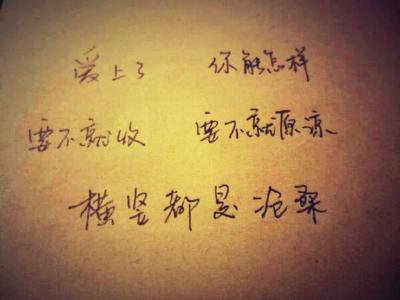 爱上了 你能怎样
要不就收 要不就原谅
横竖都是沧桑